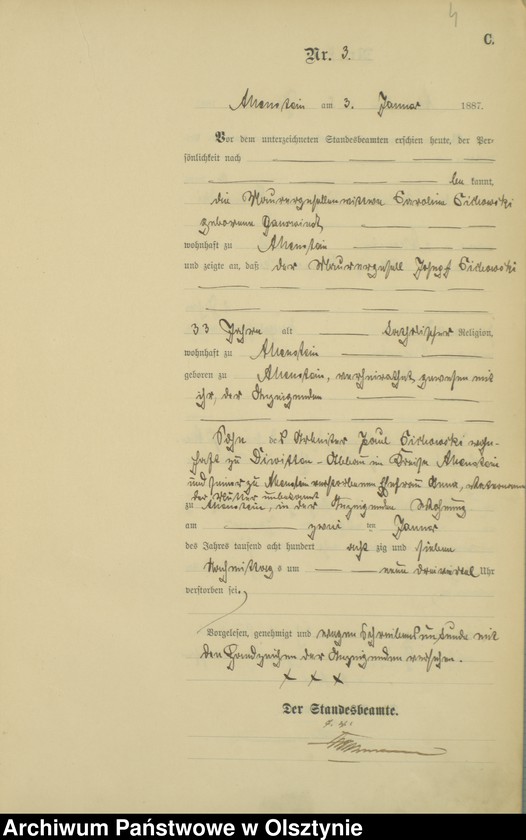 4
C.
Nr. 3.
Allenstein am 3. Januar 1887.
Vor dem unterzeichneten Standesbeamten erschien heute, der Per-
sönlichkeit nach
be kannt,
die Maurergesellenwittwe Caroline Cichowski
geborene
wohnhaft zu Allenstein
und zeigte an, daß der Maurergesell Josef Cichowski
33 Jahre alt katholischer Religion,
wohnhaft zu Allenstein
geboren zu Allenstein, verheirathet gewesen mit
ihr, der Anzeigenden
Sohn des Arbeiter Paul Cichowski wohn-
haft zu Diwitten-Abbau im Kreise Allenstein
und seiner zu Allenstein verstorbenen Ehefrau Anna,
der Mutter unbekannt
zu Allenstein, in der Anzeigenden Wohnung
am zwei ten Januar
des Jahres tausend acht hundert acht zig und sieben
Nachmittags um neun dreiviertel Uhr
verstorben sei.
Vorgelesen, genehmigt und wegen Schreibensunkunde mit
den Handzeichen der Anzeigenden versehen.
x x x
Der Standesbeamte.
Archiwum Państwowe w Olsztynie